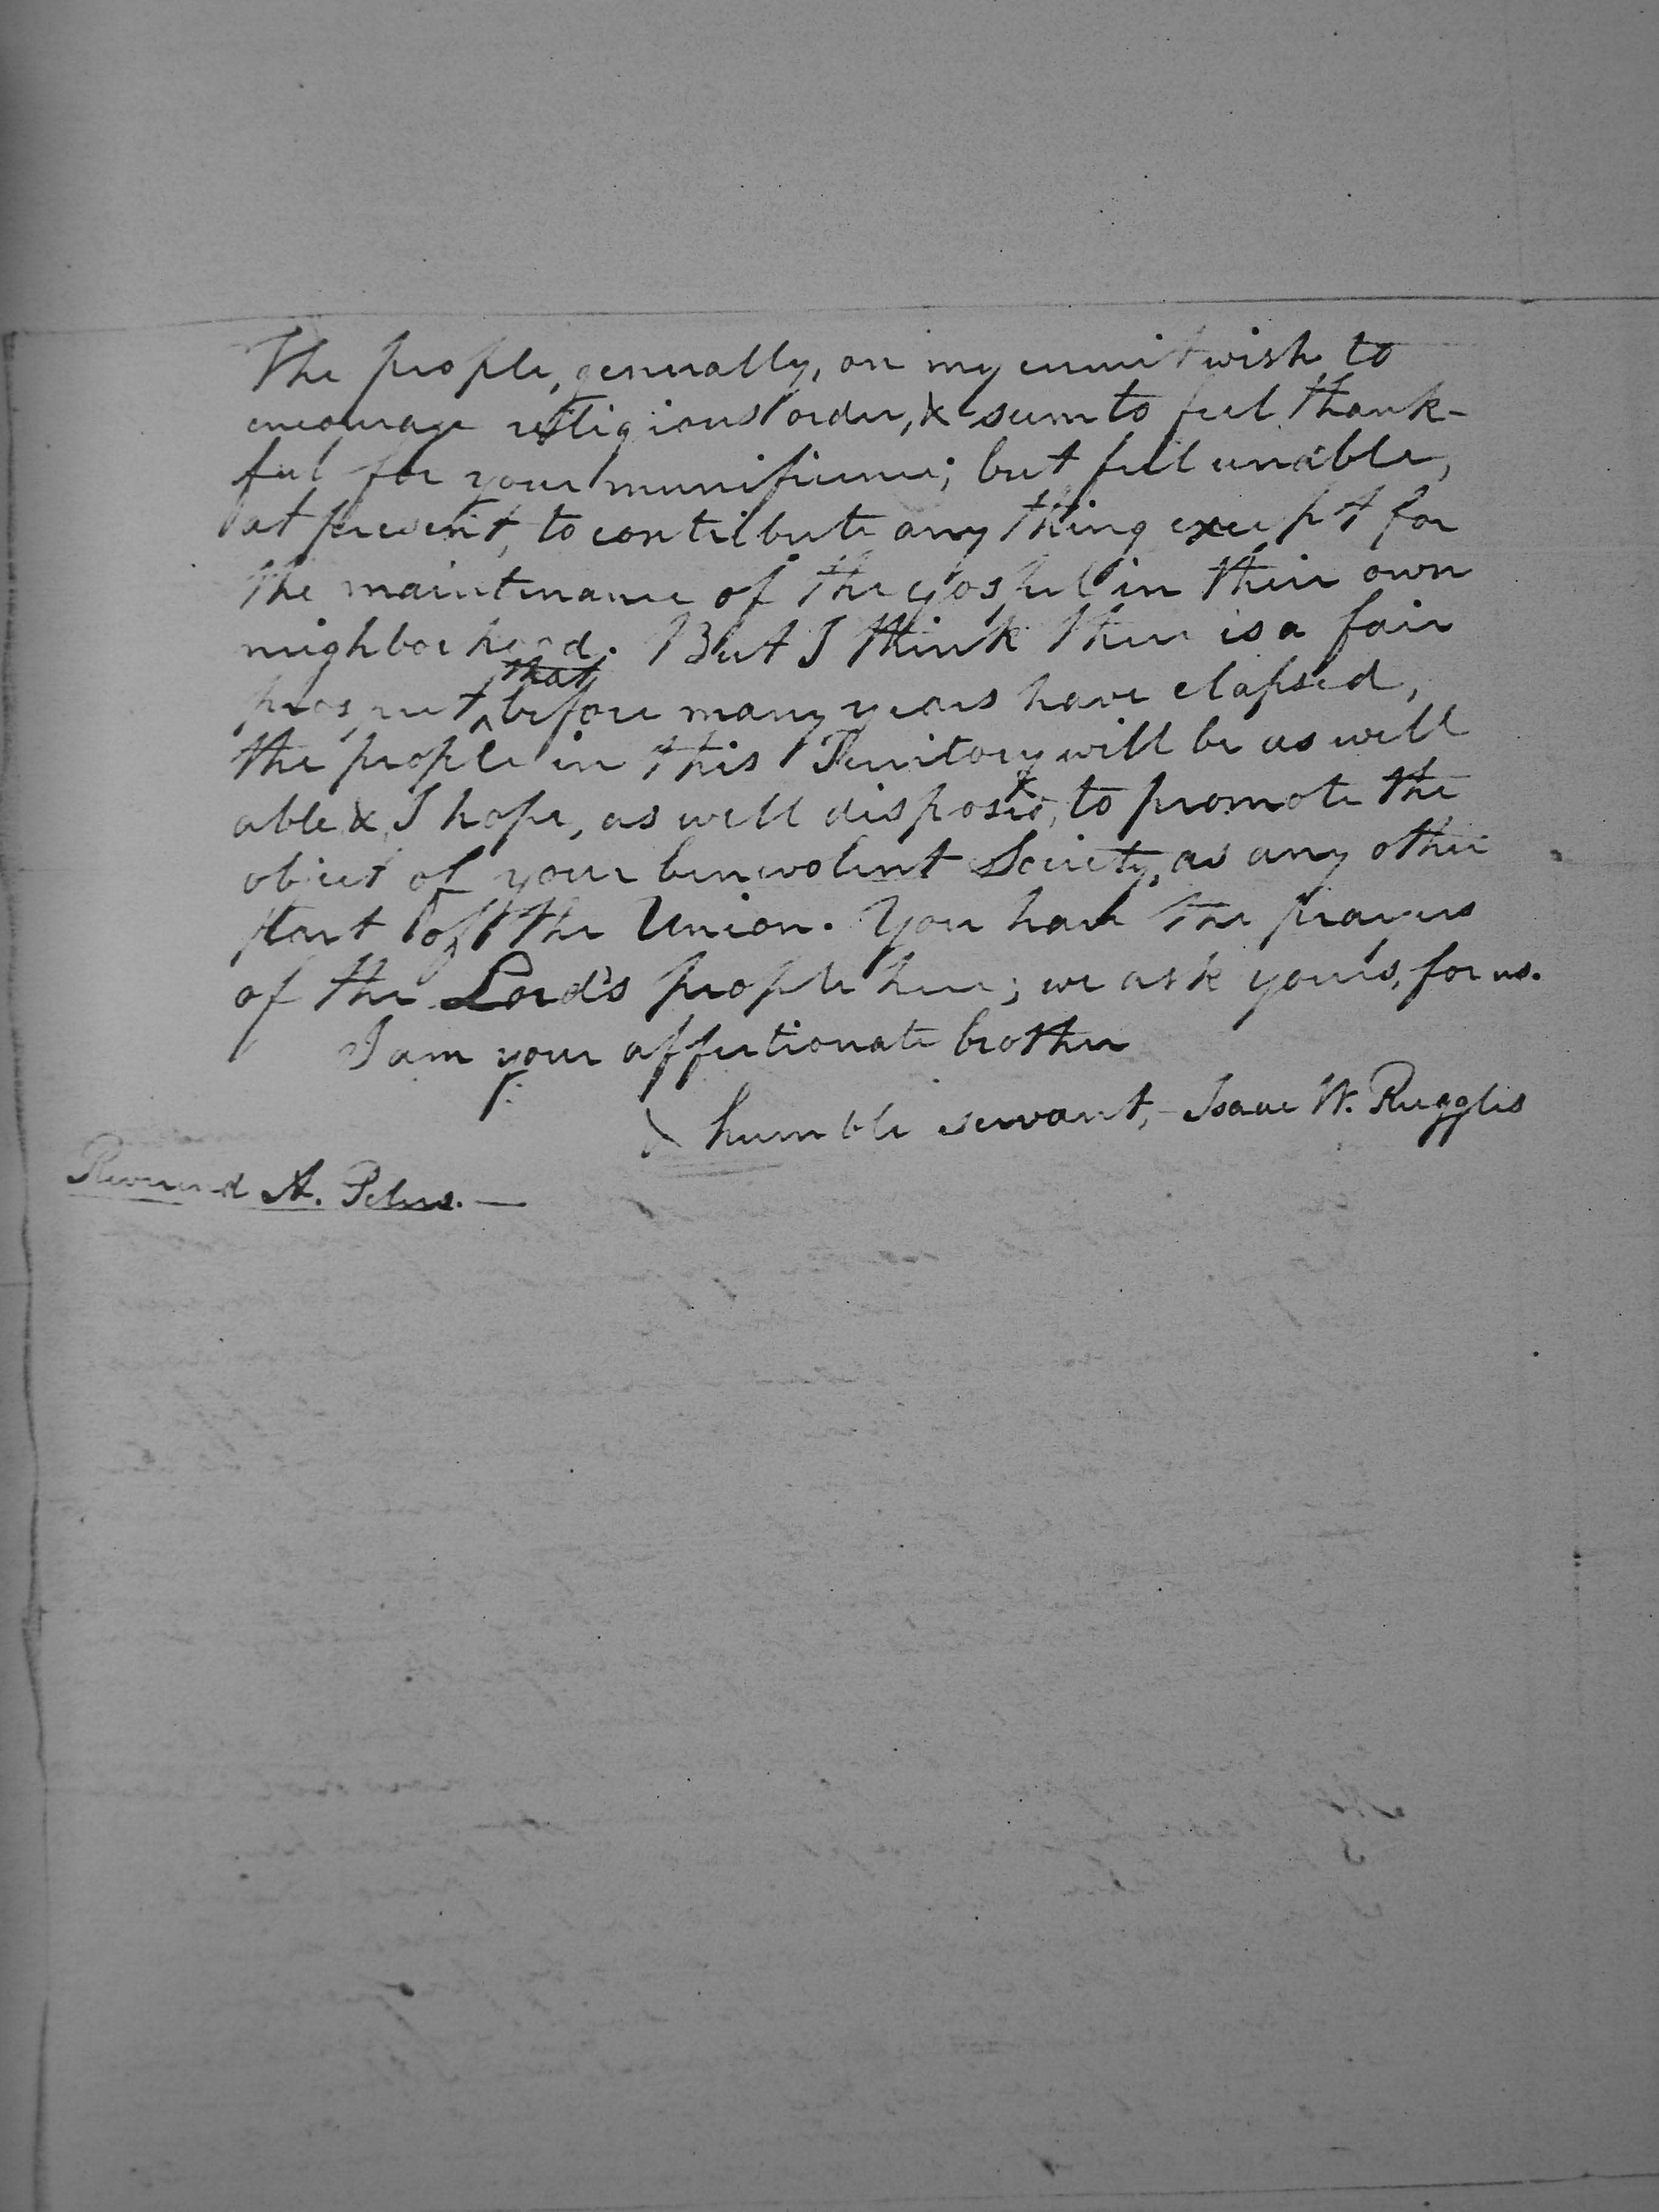 The people, generally, on my circuit wish to
encourage religious order, & seem to feel thank-
ful for your munificence; but feel unable,
at present, to contribute any thing except for
the maintenance of the gospel in their own
neighborhood. But I think there is a fair
prospect that before many years have elapsed,
the people in this Territory will be as well
able &, I hope, as well disposed, to promote the
object of your benevolent Society, as any other
part of the Union. You have the prayers
of the Lord's people here; we ask yours, for us.
I am your affectionate brother
& humble servant, Isaac W. Ruggles
Reverend A. Peters. —